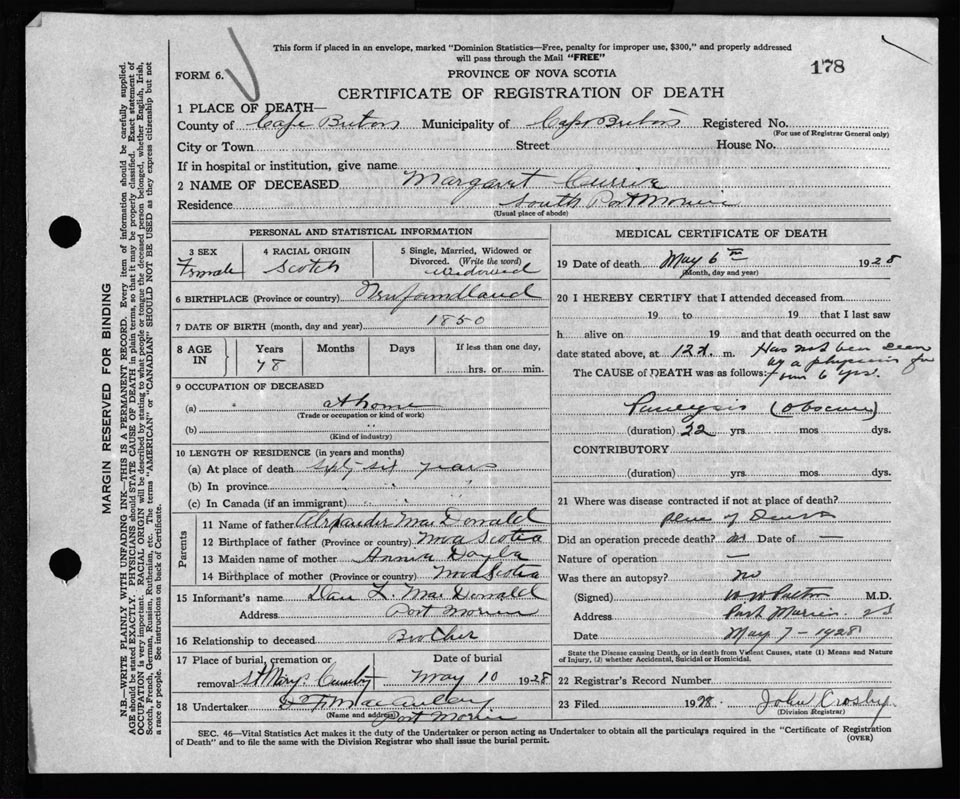 This form if placed in an envelope, marked "Dominion Statistics—Free, penalty for improper use, $300," and properly addressed
will pass through the Mail "FREE"
FORM 6.
PROVINCE OF NOVA SCOTIA
178
CERTIFICATE OF REGISTRATION OF DEATH
1 PLACE OF DEATH—
County of Cape Breton Municipality of Cape Breton Registered No.
(For use of Registrar General only)
City or Town Street House No.
If in hospital or institution, give name
2 NAME OF DECEASED Margaret Currie
Residence South Port Morien
(Usual place of abode)
PERSONAL AND STATISTICAL INFORMATION
3 SEX
Female
4 RACIAL ORIGIN
Scotch
5 Single, Married, Widowed or
Divorced. (Write the word)
Widowed
6 BIRTHPLACE (Province or country) Newfoundland
7 DATE OF BIRTH (month, day and year) 1850
8 AGE IN
Years
78
Months
Days
If less than one day,
hrs. or min.
9 OCCUPATION OF DECEASED
(a) at home
(Trade or occupation or kind of work)
(b)
(Kind of industry)
10 LENGTH OF RESIDENCE (in years and months)
(a) At place of death sixty-six years
(b) In province " "
(c) In Canada (if an immigrant) " "
Parents
11 Name of father Alexander MacDonald
12 Birthplace of father (Province or country) Nova Scotia
13 Maiden name of mother Annie
14 Birthplace of mother (Province or country) Nova Scotia
15 Informant's name Dan L. MacDonald
Address Port Morien
16 Relationship to deceased Brother
17 Place of burial, cremation or
removal St Marys Cemetery
Date of burial
May 10 1928
18 Undertaker MacAulay
(Name and address) Port Morien
MEDICAL CERTIFICATE OF DEATH
19 Date of death May 6th 1928
(Month, day and year)
20 I HEREBY CERTIFY that I attended deceased from
19 to 19 that I last saw
h alive on 19 and that death occurred on the
date stated above, at 12 m. Has not been seen
by a physician for
The CAUSE of DEATH was as follows: 6 yrs.
Paralysis (obscure)
(duration) 22 yrs. mos. dys.
CONTRIBUTORY
(duration) yrs. mos. dys.
21 Where was disease contracted if not at place of death?
place of Death
Did an operation precede death? no Date of —
Nature of operation —
Was there an autopsy? no
(Signed) M.D.
Address Port Morien NS
Date May 7 - 1928
State the Disease causing Death, or in death from Violent Causes, state (1) Means and Nature
of Injury, (2) whether Accidental, Suicidal or Homicidal.
22 Registrar's Record Number
23 Filed 1928 John Crosby
(Division Registrar)
SEC. 46—Vital Statistics Act makes it the duty of the Undertaker or person acting as Undertaker to obtain all the particulars required in the "Certificate of Registration
of Death" and to file the same with the Division Registrar who shall issue the burial permit.
(OVER)
MARGIN RESERVED FOR BINDING
N.B.—WRITE PLAINLY WITH UNFADING INK—THIS IS A PERMANENT RECORD. Every item of information should be carefully supplied.
AGE should be stated EXACTLY. PHYSICIANS should STATE CAUSE OF DEATH in plain terms, so that it may be properly classified. Exact statement of
OCCUPATION is very important. RACIAL ORIGIN will be described by stating to what people or tongue the deceased person belonged, whether English, Irish,
Scotch, French, German, Russian, Ruthenian, etc. The terms "AMERICAN" or "CANADIAN" SHOULD NOT BE USED as they express citizenship but not
a race or people. See instructions on back of Certificate.